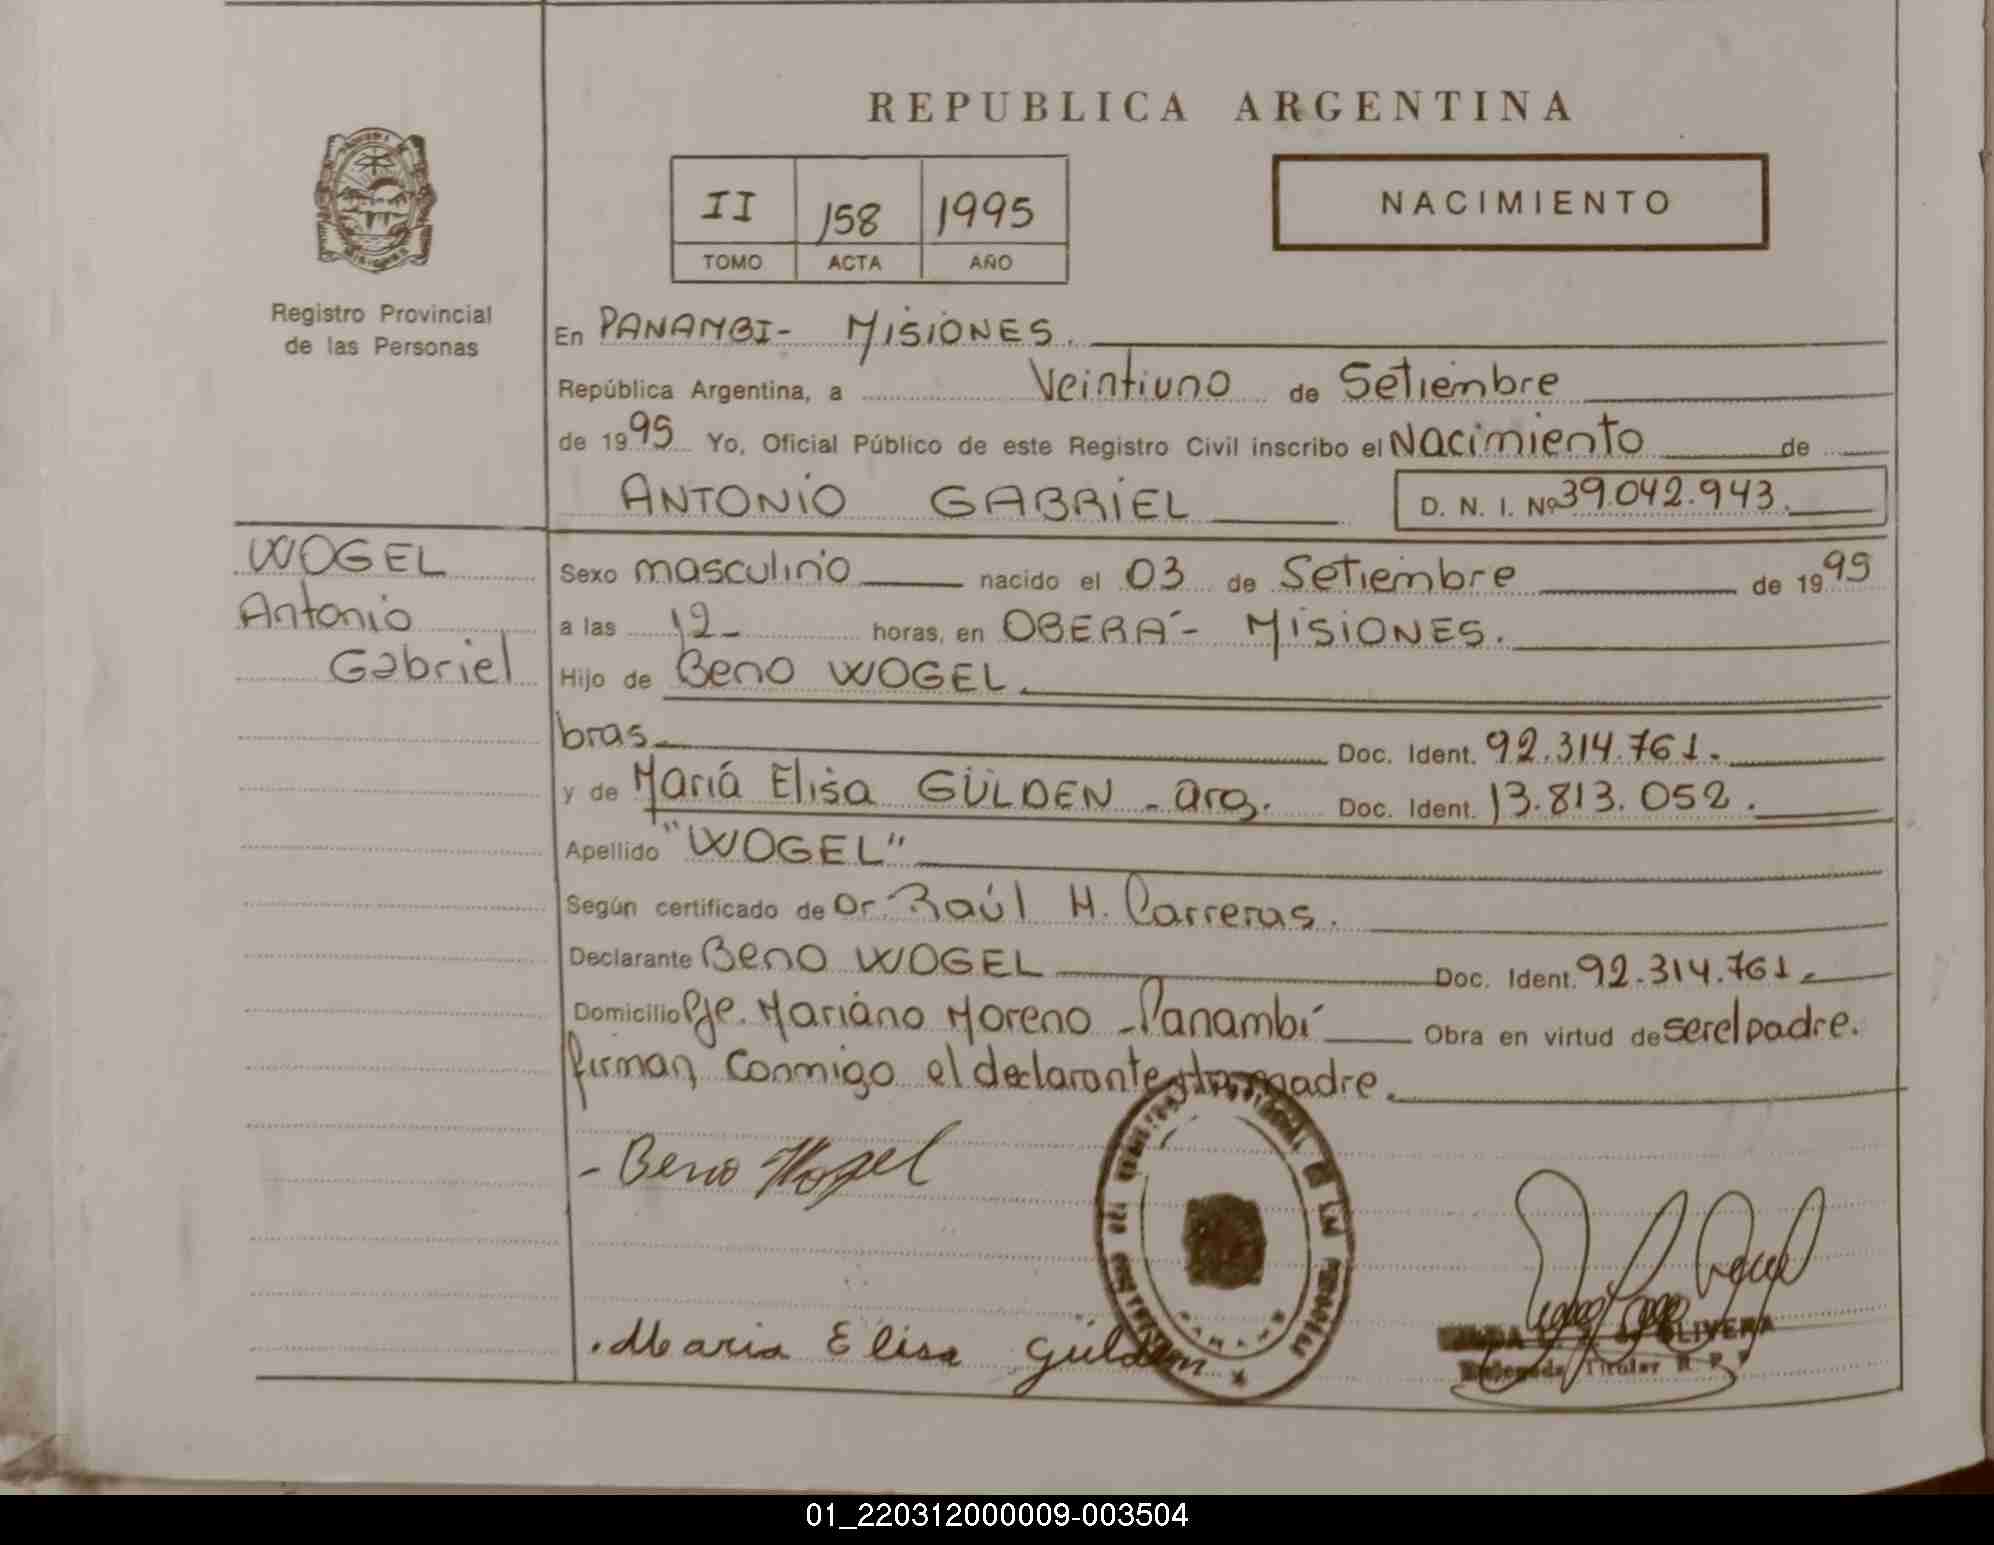 REPUBLICA ARGENTINA
II 158 1995
TOMO ACTA AÑO
NACIMIENTO
Registro Provincial
de las Personas
En PANAMBI- MISIONES.
República Argentina, a Veintiuno de Setiembre
de 1995 Yo, Oficial Público de este Registro Civil inscribo el Nacimiento de
ANTONIO GABRIEL D. N. I. Nº 39.042.943.
WOGEL
Antonio
Gabriel
Sexo masculino nacido el 03 de Setiembre de 1995
a las 12- horas, en OBERÁ- MISIONES.
Hijo de Beno WOGEL.
bras. Doc. Ident. 92.314.761.
y de Mariá Elisa GÜLDEN - arg. Doc. Ident. 13.813.052.
Apellido "WOGEL"
Según certificado de Dr. Raúl H. Carreras.
Declarante Beno WOGEL Doc. Ident. 92.314.761.
Domicilio Pje. Mariano Moreno - Panambí Obra en virtud de ser el padre.
firman conmigo el declarante y la madre.
- Beno Wogel
. Maria Elisa Gülden
OLIVERA
Titular R. P. P.
01_220312000009-003504